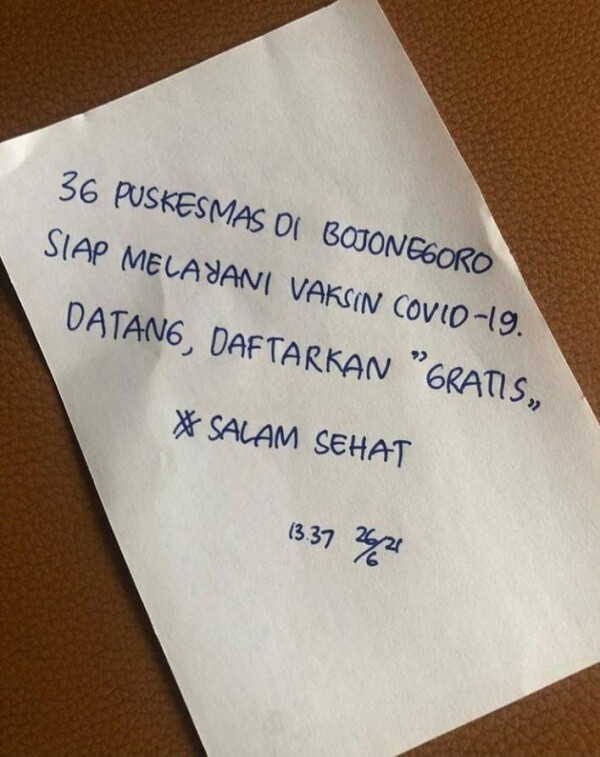 36 PUSKESMAS DI BOJONEGORO
SIAP MELAYANI VAKSIN COVID-19.
DATANG, DAFTARKAN "GRATIS„
* SALAM SEHAT
13.37 26/6 21